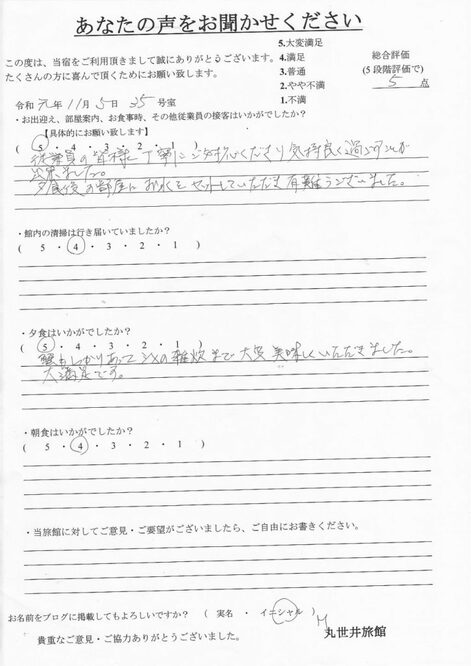 あなたの声をお聞かせください
この度は、当宿をご利用頂きまして誠にありがとうございます。
たくさんの方に喜んで頂くためにお願い致します。
5.大変満足
4.満足
3.普通
2.やや不満
1.不満
総合評価
(5段階評価で)
5 点
令和 元年 11月 5日 35号室
・お出迎え、部屋案内、お食事時、その他従業員の接客はいかがでしたか?
【具体的にお願い致します】
( 5 ・ 4 ・ 3 ・ 2 ・ 1 )
従業員の皆様に丁寧にご対応くださり気持良く過ごすことが
出来ました。
夕食後の部屋にお水をセットしていただき有難うございました。
・館内の清掃は行き届いていましたか?
( 5 ・ 4 ・ 3 ・ 2 ・ 1 )
・夕食はいかがでしたか?
( 5 ・ 4 ・ 3 ・ 2 ・ 1 )
蟹もしっかりあって〆の雑炊まで大変美味しくいただきました。
大満足です。
・朝食はいかがでしたか?
( 5 ・ 4 ・ 3 ・ 2 ・ 1 )
・当旅館に対してご意見・ご要望がございましたら、ご自由にお書きください。
お名前をブログに掲載してもよろしいですか? ( 実名 ・ イニシャル ) M
貴重なご意見・ご協力ありがとうございました。
丸世井旅館